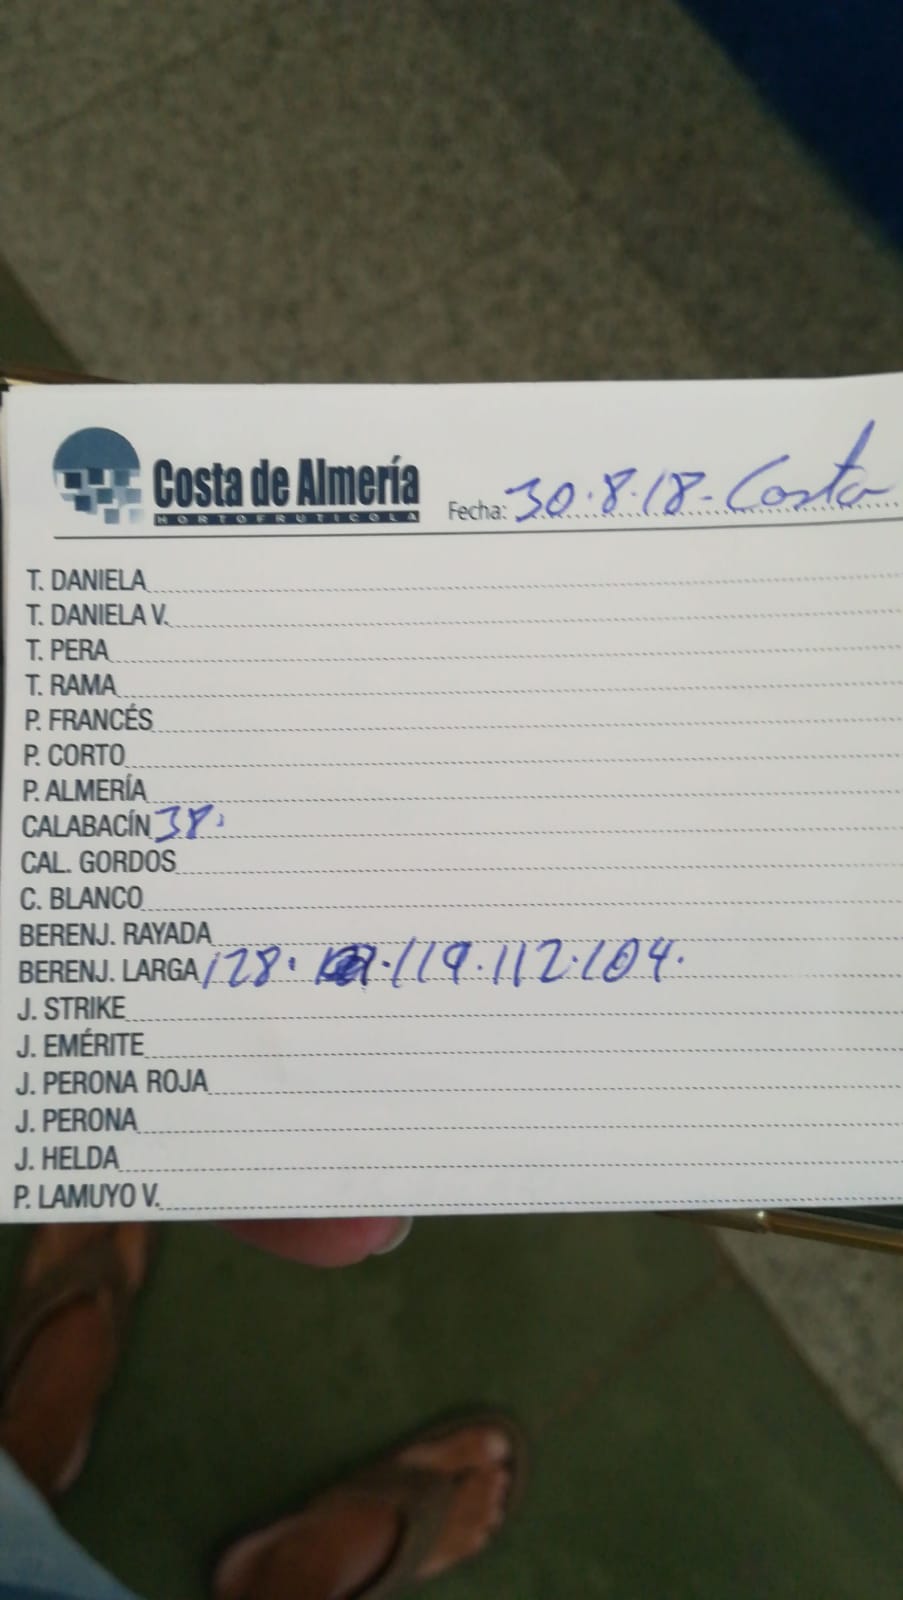 Costa de Almería
HORTOFRUTICOLA
Fecha: 30.8.18-Costa
T. DANIELA
T. DANIELA V.
T. PERA
T. RAMA
P. FRANCÉS
P. CORTO
P. ALMERÍA
CALABACÍN 38.
CAL. GORDOS
C. BLANCO
BERENJ. RAYADA
BERENJ. LARGA 128. .119.112.104.
J. STRIKE
J. EMÉRITE
J. PERONA ROJA
J. PERONA
J. HELDA
P. LAMUYO V.